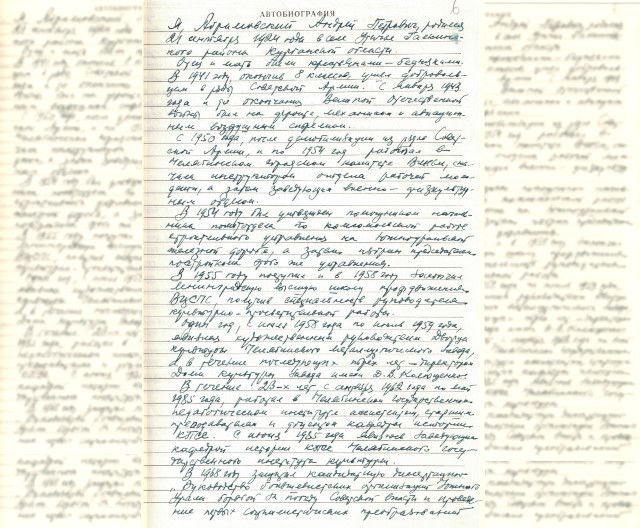 6
АВТОБИОГРАФИЯ
Я, Абрамовский Андрей Петрович, родился
21 сентября 1924 года в селе района Курганской области.
Отец и мать были крестьянами-бедняками.
В 1941 году, окончив 8 классов, ушел доброволь-
цем в ряды Советской Армии. С января 1943
года и до окончания Великой Отечественной
войны был на фронте, механиком в авиацион-
ном воздушной
С 1950 года, после демобилизации из рядов Совет-
ской Армии, и по 1954 год работал в
Челябинском городском комитете ВЛКСМ, сна-
чала инструктором отдела рабочей моло-
дежи, а затем заведующим военно-физкультур-
ным отделом.
В 1954 году был утвержден помощником началь-
ника политотдела по комсомольской работе
строительного управления на Южноуральской
железной дороге, а затем избран председателем
этого же управления.
В 1955 году поступил и в 1958 году закончил
Ленинградскую высшую школу профдвижения
ВЦСПС, получив специальность руководителя
культурно-просветительной работы.
один год, с июля 1958 года по июнь 1959 года,
являлся художественным руководителем Дворца
культуры Челябинского металлургического завода,
а в течение последующих трех лет – директором
Дома культуры завода имени Д.В. Колющенко.
В течение 23-х лет, с апреля 1962 года по май
1985 года, работал в Челябинском государственном
педагогическом институте ассистентом, старшим
преподавателем и доцентом кафедры истории
КПСС. С июня 1985 года являюсь заведующим
кафедрой истории КПСС Челябинского госу-
дарственного института культуры.
В 1968 году защитил кандидатскую диссертацию
„Руководство большевистских организаций Южного
Урала борьбой за победу Советской власти и проведе-
ние первых социалистических преобразований